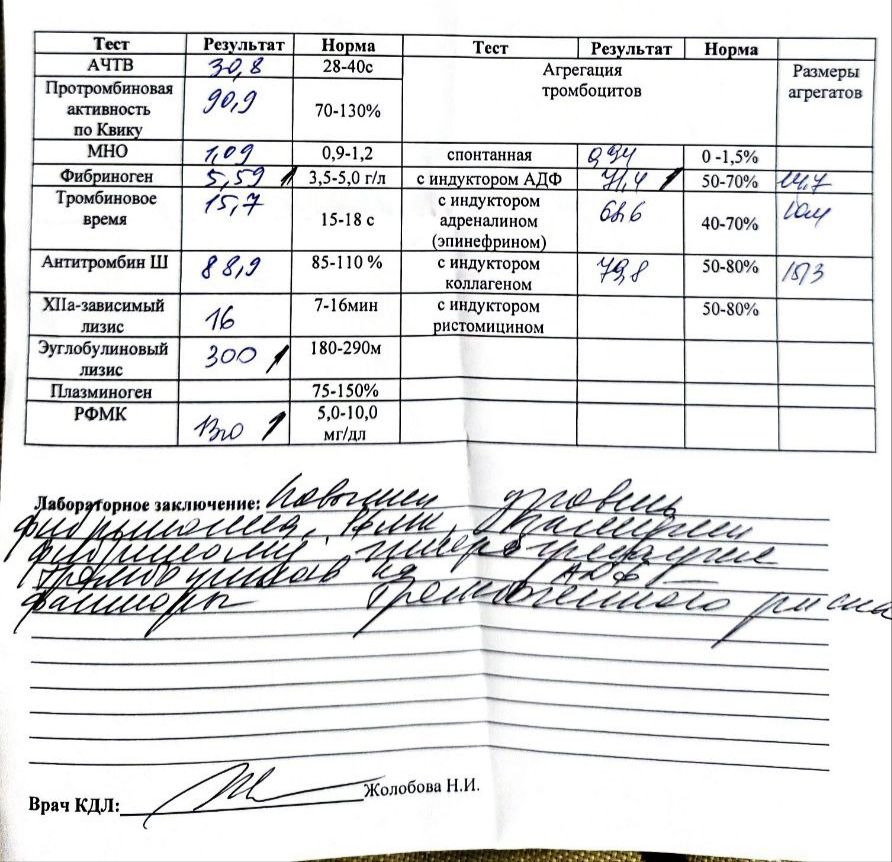 Тест Результат Норма Тест Результат Норма
АЧТВ 30,8 28-40с Агрегация тромбоцитов Размеры агрегатов
Протромбиновая активность по Квику 90,9 70-130%
МНО 1,09 0,9-1,2 спонтанная 0,94 0 -1,5%
Фибриноген 5,59 ↑ 3,5-5,0 г/л с индуктором АДФ 71,4 ↑ 50-70% 14,7
Тромбиновое время 15,7 15-18 с с индуктором адреналином (эпинефрином) 40-70%
Антитромбин Ш 88,9 85-110 % с индуктором коллагеном 79,8 50-80%
XIIа-зависимый лизис 16 7-16мин с индуктором ристомицином 50-80%
Эуглобулиновый лизис 300 ↑ 180-290м
Плазминоген 75-150%
РФМК ↑ 5,0-10,0 мг/дл
Лабораторное заключение: Повышен уровень
фибриногена, РФМК,
фибринолиз, гиперагрегация
тромбоцитов на АДФ –
факторы тромбогенного риска
Врач КДЛ: Жолобова Н.И.